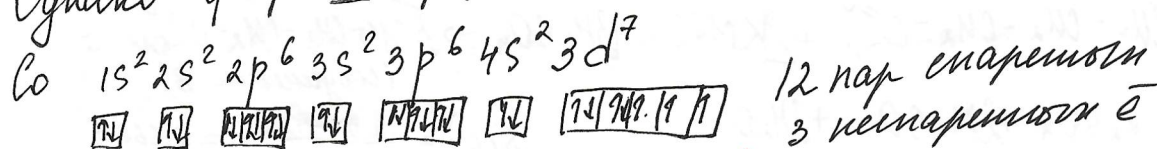 Однако
Co 1s² 2s² 2p⁶ 3s² 3p⁶ 4s² 3d⁷ 12 пар спаренных
↑↓ ↑↓ ↑↓ ↑↓ ↑↓ ↑↓ ↑↓ ↑↓ ↑↓ ↑↓ ↑↓ ↑↓ ↑ ↑ ↑ 3 неспаренных ē